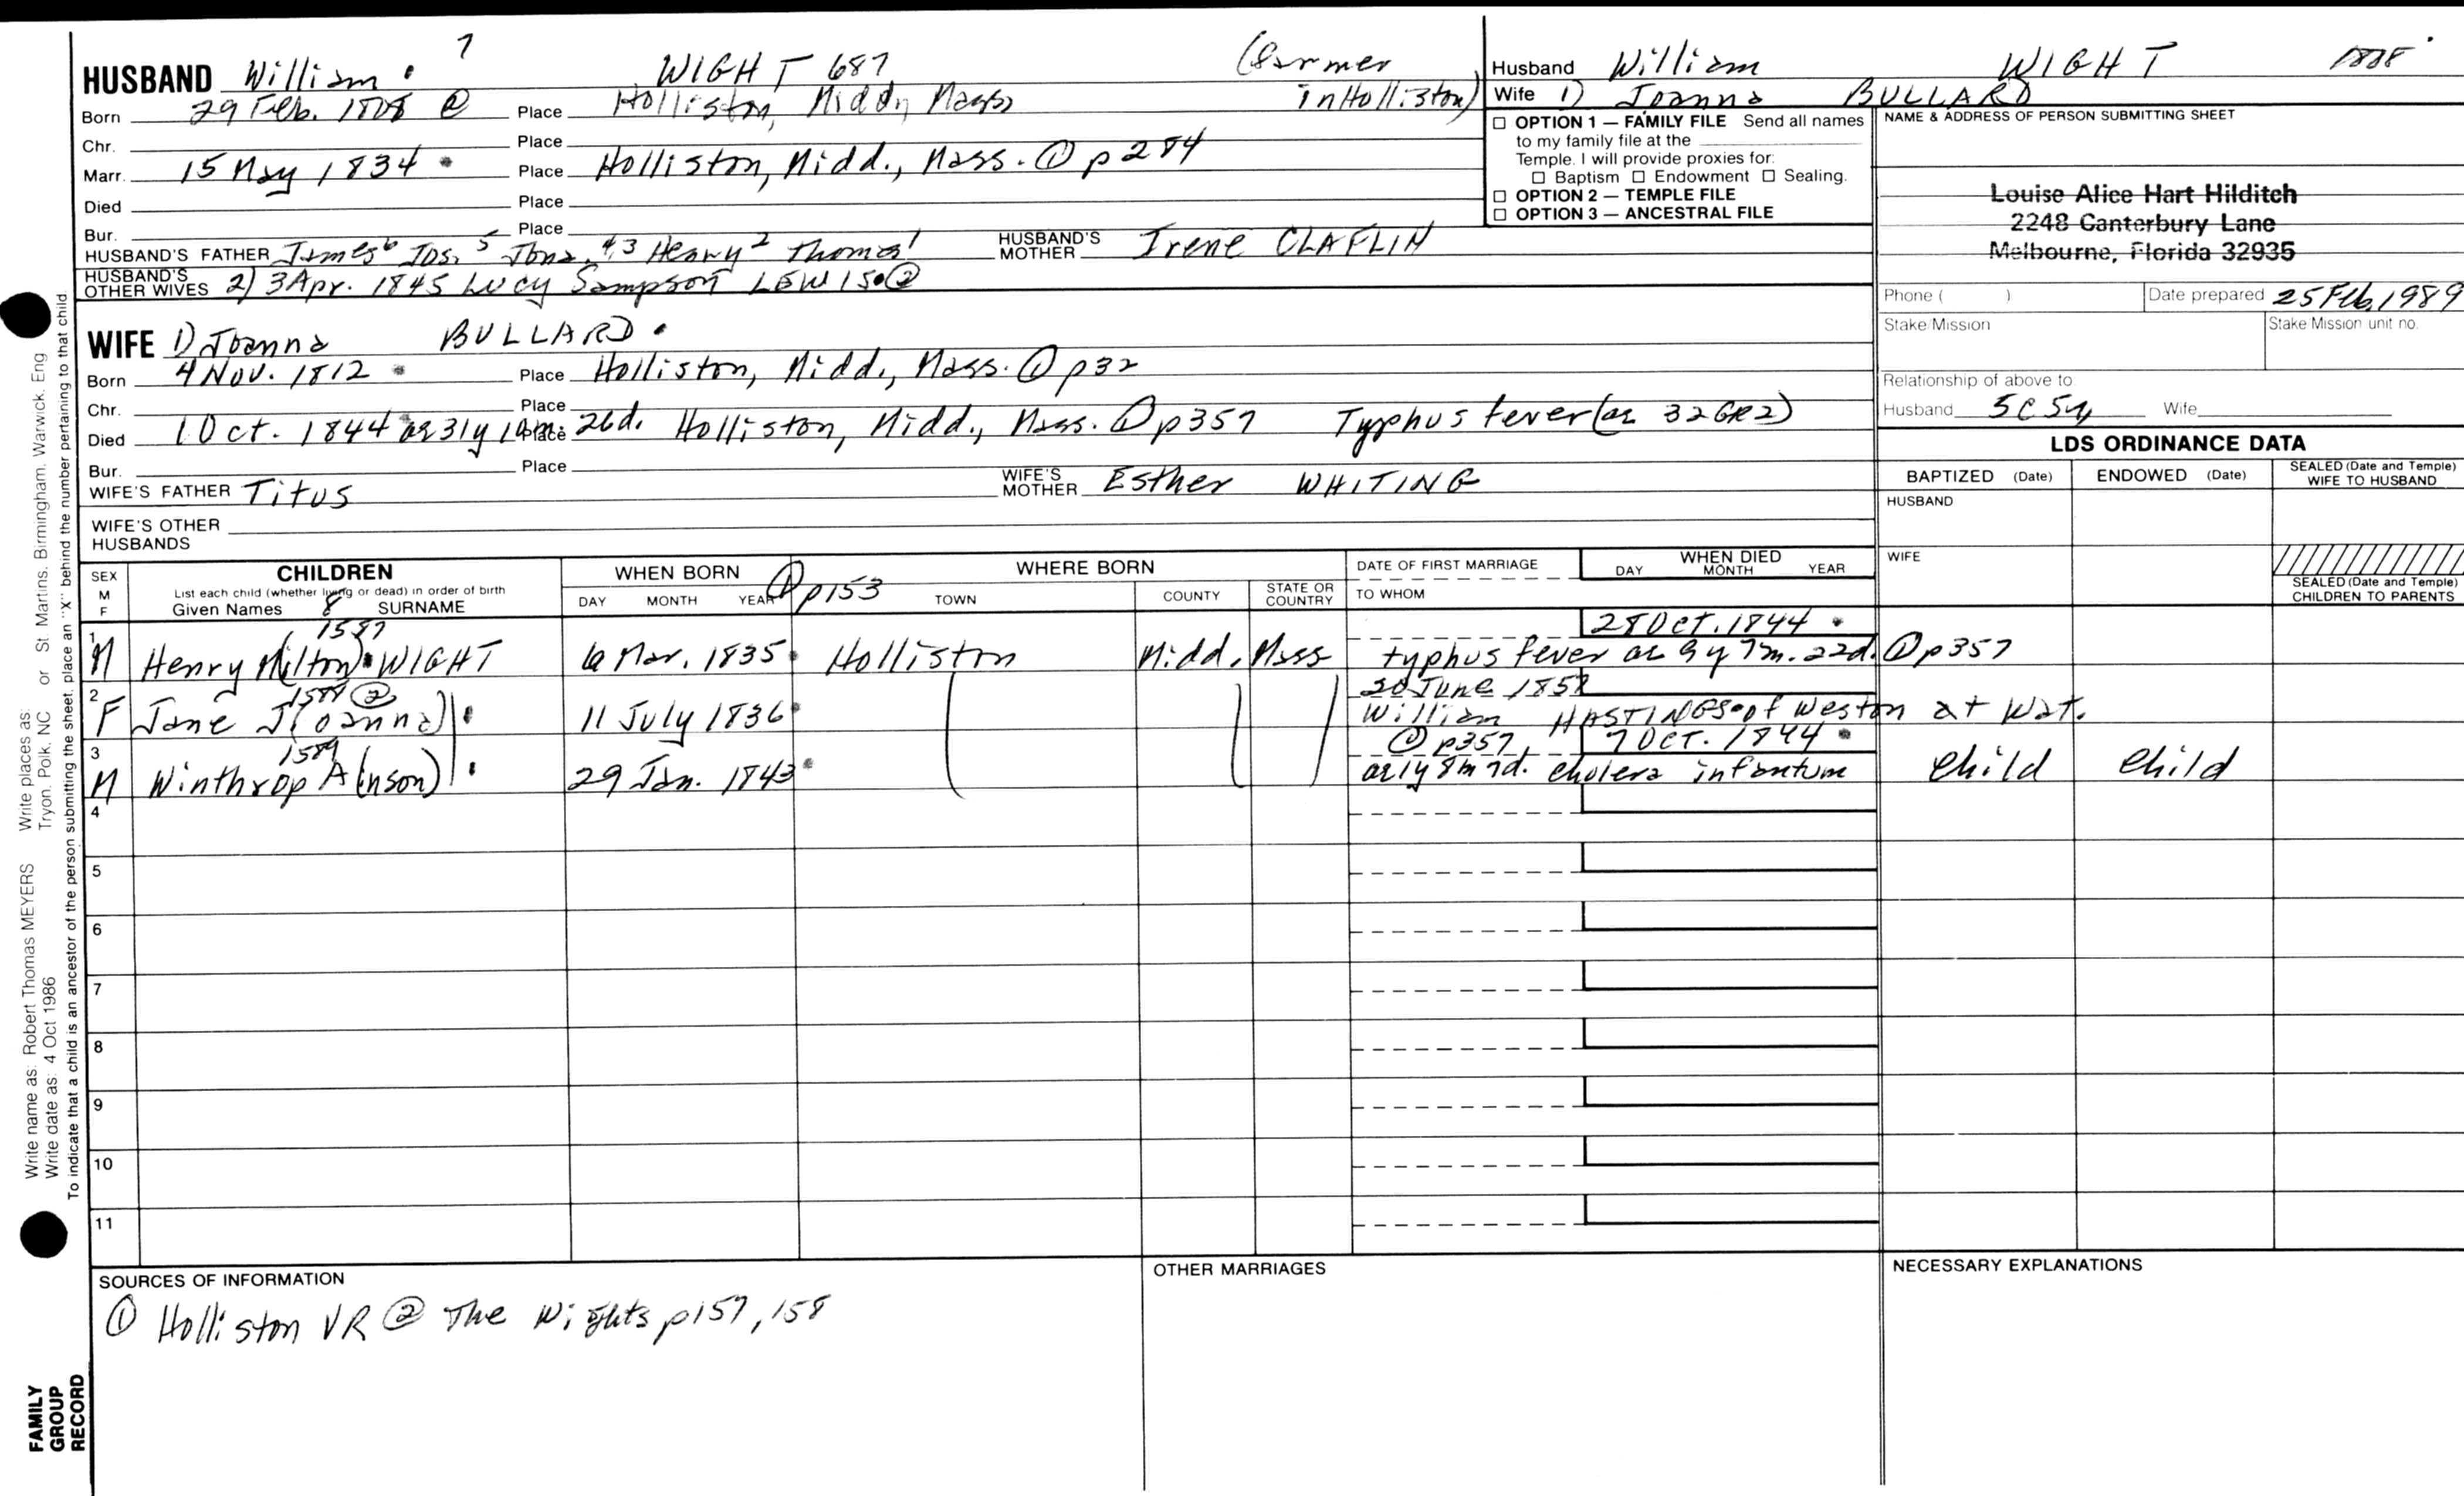 7
HUSBAND William WIGHT 687 (Farmer
in Holliston)
Born 29 Feb. 1808 @ Place Holliston, Midd, Mass
Chr. Place
Marr. 15 May 1834 Place Holliston, Midd., Mass. ① p284
Died Place
Bur. Place
HUSBAND'S FATHER James⁶ Jos.⁵ Jona.⁴ ³ Henry² Thomas¹ HUSBAND'S MOTHER Irene CLAFLIN
HUSBAND'S OTHER WIVES 2) 3 Apr. 1845 Lucy Sampson LEWIS ②
WIFE 1) Joanna BULLARD
Born 4 Nov. 1812 Place Holliston, Midd., Mass. ① p32
Chr. Place
Died 1 Oct. 1844 ae 31y 10m. Place 26d. Holliston, Midd., Mass. ① p357 Typhus fever (ae 32 GR2)
Bur. Place
WIFE'S FATHER Titus WIFE'S MOTHER Esther WHITING
WIFE'S OTHER HUSBANDS
Husband William WIGHT 1808
Wife 1) Joanna BULLARD
□ OPTION 1 — FAMILY FILE Send all names
to my family file at the
Temple. I will provide proxies for:
□ Baptism □ Endowment □ Sealing.
□ OPTION 2 — TEMPLE FILE
□ OPTION 3 — ANCESTRAL FILE
NAME & ADDRESS OF PERSON SUBMITTING SHEET
Louise Alice Hart Hilditch
2248 Canterbury Lane
Melbourne, Florida 32935
Phone ( ) Date prepared 25 Feb, 1989
Stake/Mission Stake Mission unit no.
Relationship of above to:
Husband 5C5 Wife
LDS ORDINANCE DATA
BAPTIZED (Date) ENDOWED (Date) SEALED (Date and Temple) WIFE TO HUSBAND
HUSBAND
WIFE
SEALED (Date and Temple) CHILDREN TO PARENTS
SEX M F
CHILDREN
List each child (whether living or dead) in order of birth
Given Names 8 SURNAME
WHEN BORN
DAY MONTH YEAR
① p153
WHERE BORN
TOWN COUNTY STATE OR COUNTRY
DATE OF FIRST MARRIAGE
TO WHOM
WHEN DIED
DAY MONTH YEAR
1587 28 Oct. 1844
1 M Henry (Milton) WIGHT 6 Mar. 1835 Holliston Midd. Mass typhus fever ae 9y 7m. 22d. ① p357
1588 ② 20 June 1858
2 F Jane J(oanna) 11 July 1836 William HASTINGS of Weston at Wat.
1589 ① p357, 7 Oct. 1844
3 M Winthrop A(nson) 29 Jan. 1843 ae 1y 8m 7d. cholera infantum child child
4
5
6
7
8
9
10
11
SOURCES OF INFORMATION
① Holliston VR ② The Wights p157, 158
OTHER MARRIAGES
NECESSARY EXPLANATIONS
Write name as: Robert Thomas MEYERS Write places as: St Martins, Birmingham, Warwick, Eng
Write date as: 4 Oct 1986 Tryon, Polk, NC or
To indicate that a child is an ancestor of the person submitting the sheet, place an "X" behind the number pertaining to that child.
FAMILY
GROUP
RECORD